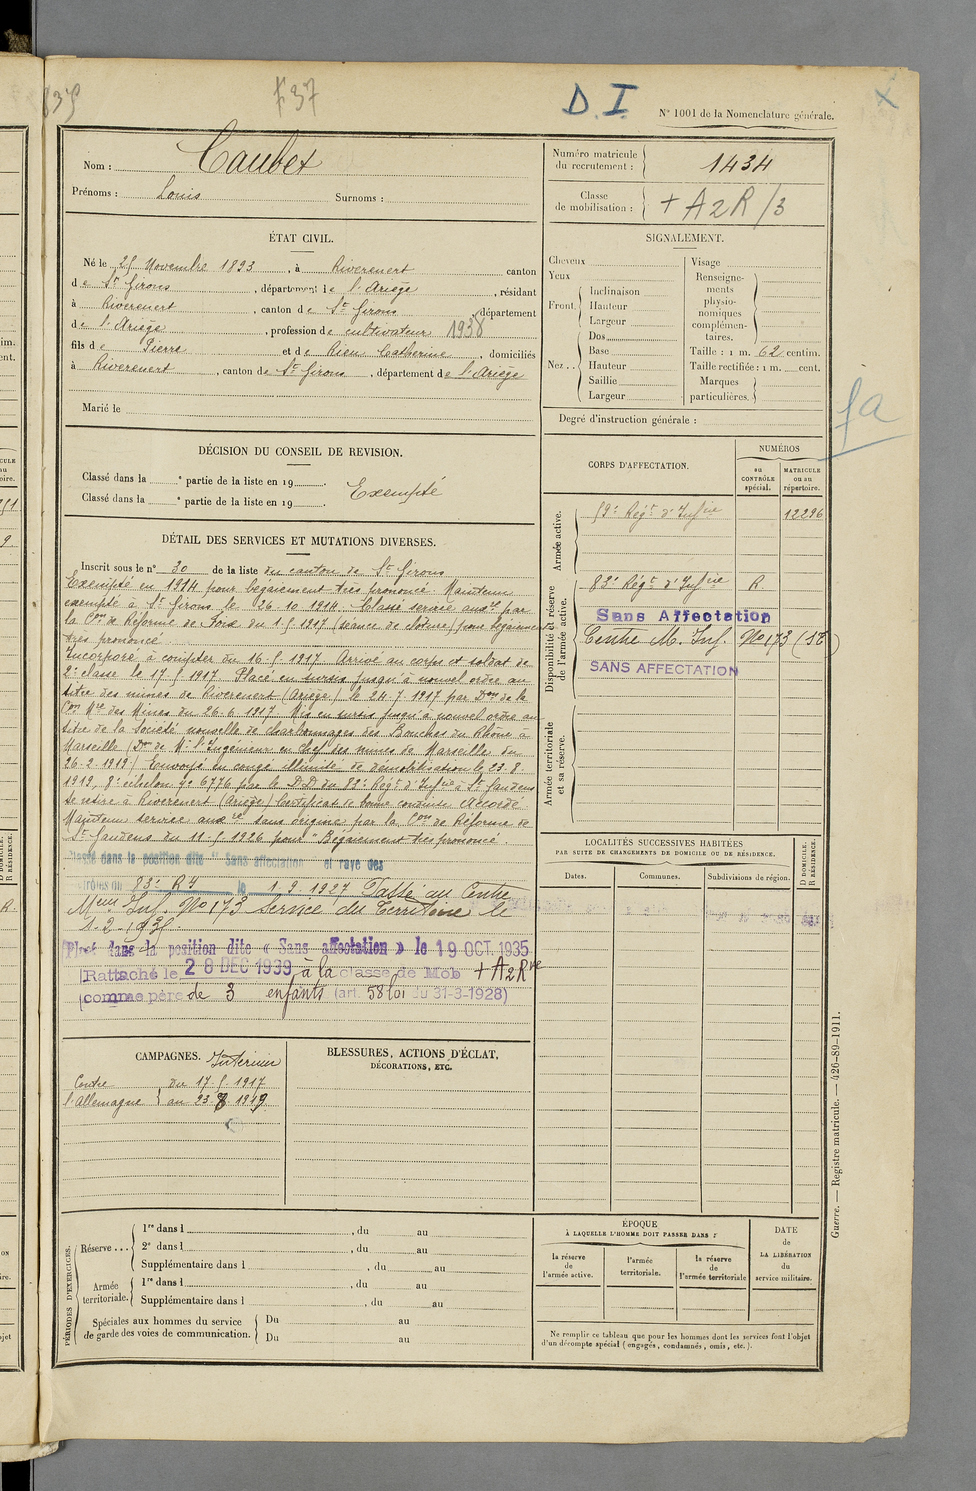 £37
D. I.
N° 1001 de la Nomenclature générale.
Nom : Caubet
Prénoms : Louis Surnoms :
Numéro matricule du recrutement : 1434
Classe de mobilisation : + A2R/3
ÉTAT CIVIL.
Né le 25 Novembre 1893, à Riverenert canton
de St Girons, département de l'Ariège, résidant
à Riverenert, canton de St Girons, département
de l'Ariège, profession de cultivateur 1938
fils de Pierre et de Rieu Catherine, domiciliés
à Riverenert, canton de St Girons, département de l'Ariège
Marié le
SIGNALEMENT.
Cheveux
Yeux
Front. Inclinaison
Hauteur
Largeur
Nez.. Dos
Base
Hauteur
Saillie
Largeur
Visage
Renseigne-
ments
physio-
nomiques
complémen-
taires.
Taille : 1 m. 62 centim.
Taille rectifiée : 1 m. cent.
Marques
particulières.
Degré d'instruction générale :
fa
DÉCISION DU CONSEIL DE REVISION.
Classé dans la ° partie de la liste en 19 .
Classé dans la ° partie de la liste en 19 .
Exempté
CORPS D'AFFECTATION.
NUMÉROS
au CONTRÔLE spécial.
MATRICULE ou au répertoire.
Armée active.
59e Régt d'Infrie 12296
Disponibilité et réserve de l'armée active.
83e Régt d'Infrie R
Sans Affectation
Centre M. Inf. No 173 (ST)
SANS AFFECTATION
Armée territoriale et sa réserve.
DÉTAIL DES SERVICES ET MUTATIONS DIVERSES.
Inscrit sous le n° 30 de la liste du canton de St Girons
Exempté en 1914 pour bégaiement très prononcé Maintenu
exempté à St Girons le 26.10.1914. Classé service auxre par
la Con de Réforme de Foix du 1.5.1917 (séance de cloture) pour bégaiement
très prononcé
Incorporé à compter du 16.5.1917 Arrivé au corps et soldat de
2e classe le 17.5.1917 Placé en sursis jusqu'à nouvel ordre au
titre des mines de Riverenert (Ariège) le 24.7.1917 par Don de la
Con Mre des Mines du 26.6.1917 Mis en sursis jusqu'à nouvel ordre au
titre de la Société nouvelle de charbonnages des Bouches du Rhône à
Marseille (Don de Mr l'Ingénieur en chef des mines de Marseille du
26.2.1919) Envoyé en congé illimité de démobilisation le 23.8.
1919, 8e échelon no 6776 par le D.D. du 83e Régt d'Infrie à St Gaudens
Se retire à Riverenert (Ariège) Certificat de bonne conduite Accordé
Maintenu service auxre sans origine par la Con de Réforme de
St Gaudens du 11.5.1926 pour "Bégaiement très prononcé.
Classé dans la position dite "Sans affectation" et rayé des
contrôles du 83e RI le 1.9.1927 Passé au Centre
Meur Inf. No 173 Service du Territoire le
1.2.
Placé dans la position dite « Sans affectation » le 19 OCT. 1935
Rattaché le 28 DEC 1939 à la classe de Mob + A2Rve
comme père de 3 enfants (art. 58 loi du 31-3-1928)
LOCALITÉS SUCCESSIVES HABITÉES
PAR SUITE DE CHANGEMENTS DE DOMICILE OU DE RÉSIDENCE.
Dates. Communes. Subdivisions de région. D DOMICILE. R RÉSIDENCE.
CAMPAGNES. Intérieur
Contre du 17.5.1917
l'Allemagne au 23.8.1919
BLESSURES, ACTIONS D'ÉCLAT,
DÉCORATIONS, ETC.
PÉRIODES D'EXERCICES.
Réserve... 1re dans l , du au
2e dans l , du au
Supplémentaire dans l , du au
Armée territoriale. 1re dans l , du au
Supplémentaire dans l , du au
Spéciales aux hommes du service de garde des voies de communication. Du au
Du au
ÉPOQUE
À LAQUELLE L'HOMME DOIT PASSER DANS :
la réserve de l'armée active.
l'armée territoriale.
la réserve de l'armée territoriale
DATE de LA LIBÉRATION du service militaire.
Ne remplir ce tableau que pour les hommes dont les services font l'objet
d'un décompte spécial (engagés, condamnés, omis, etc.).
Guerre. — Registre matricule. — 426-89-1911.